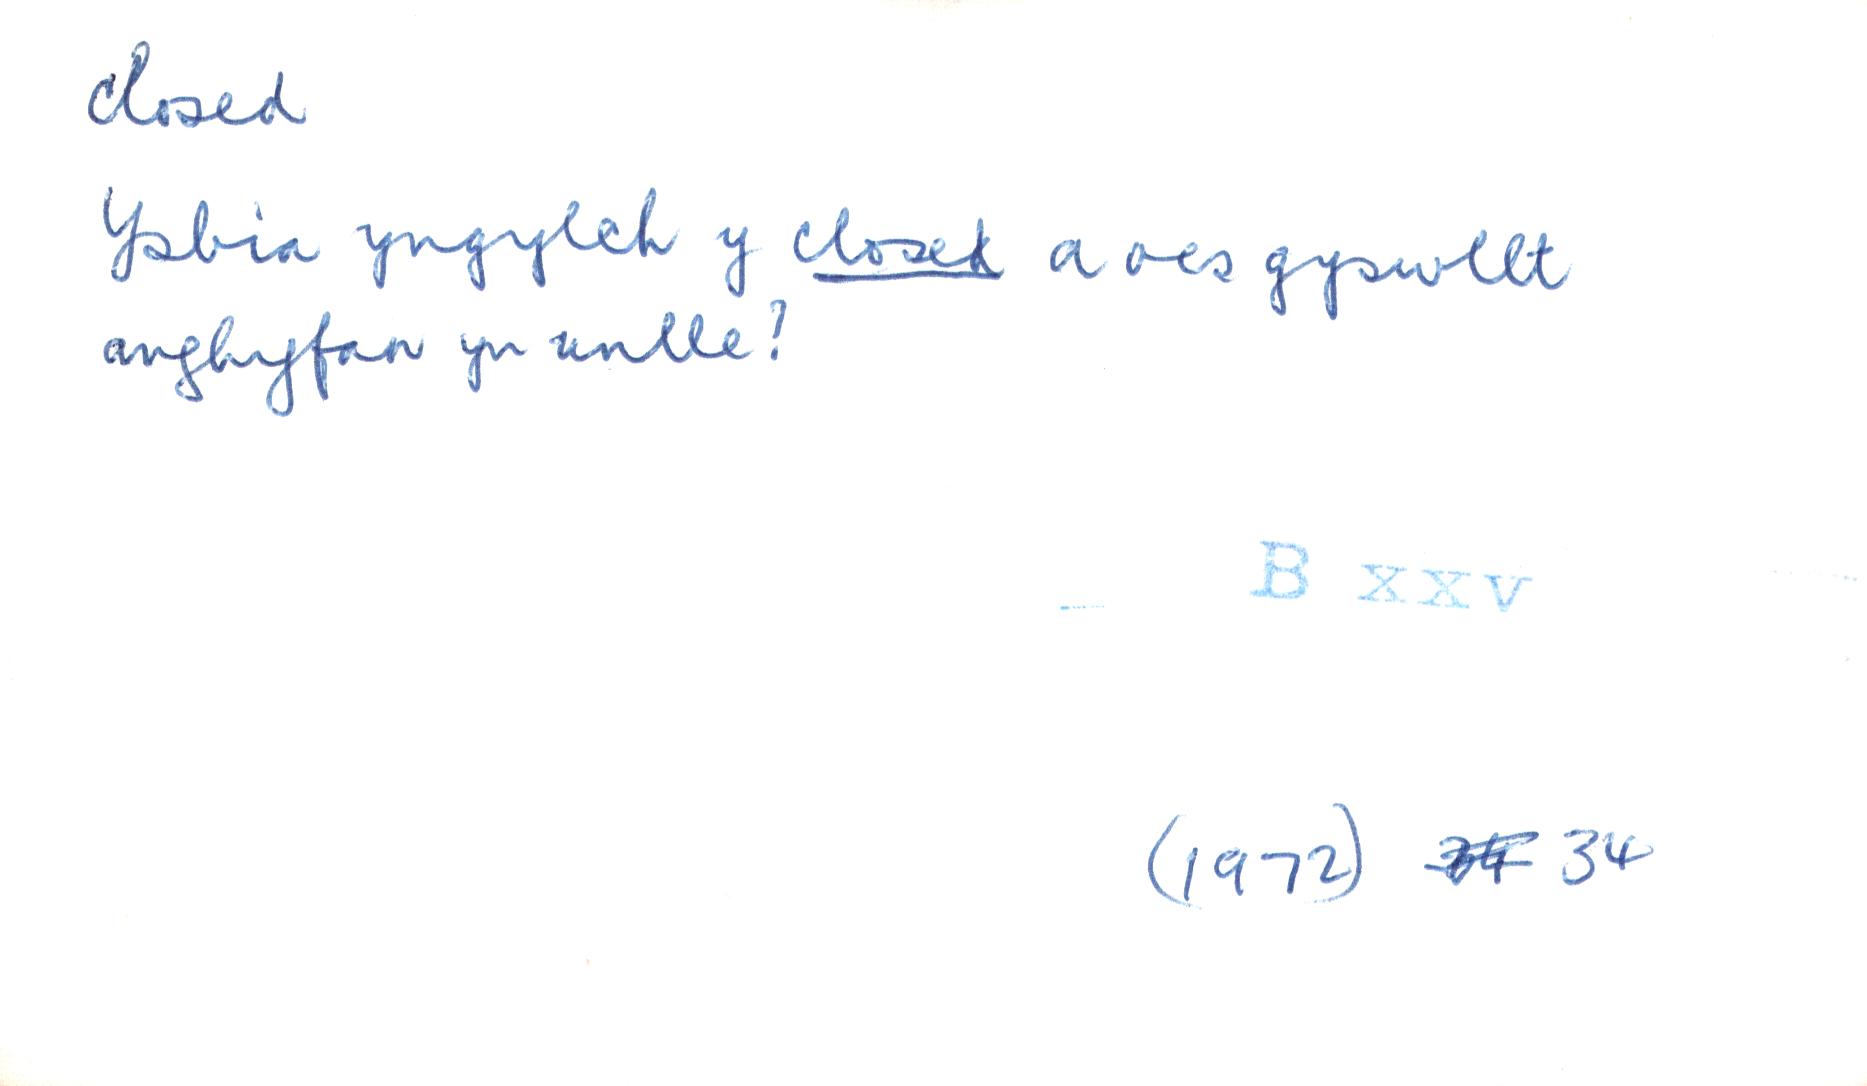 closed
Ysbia yngylch y closed a oes gyswllt
anghyfan yn unlle?
B xxv
(1972) 34